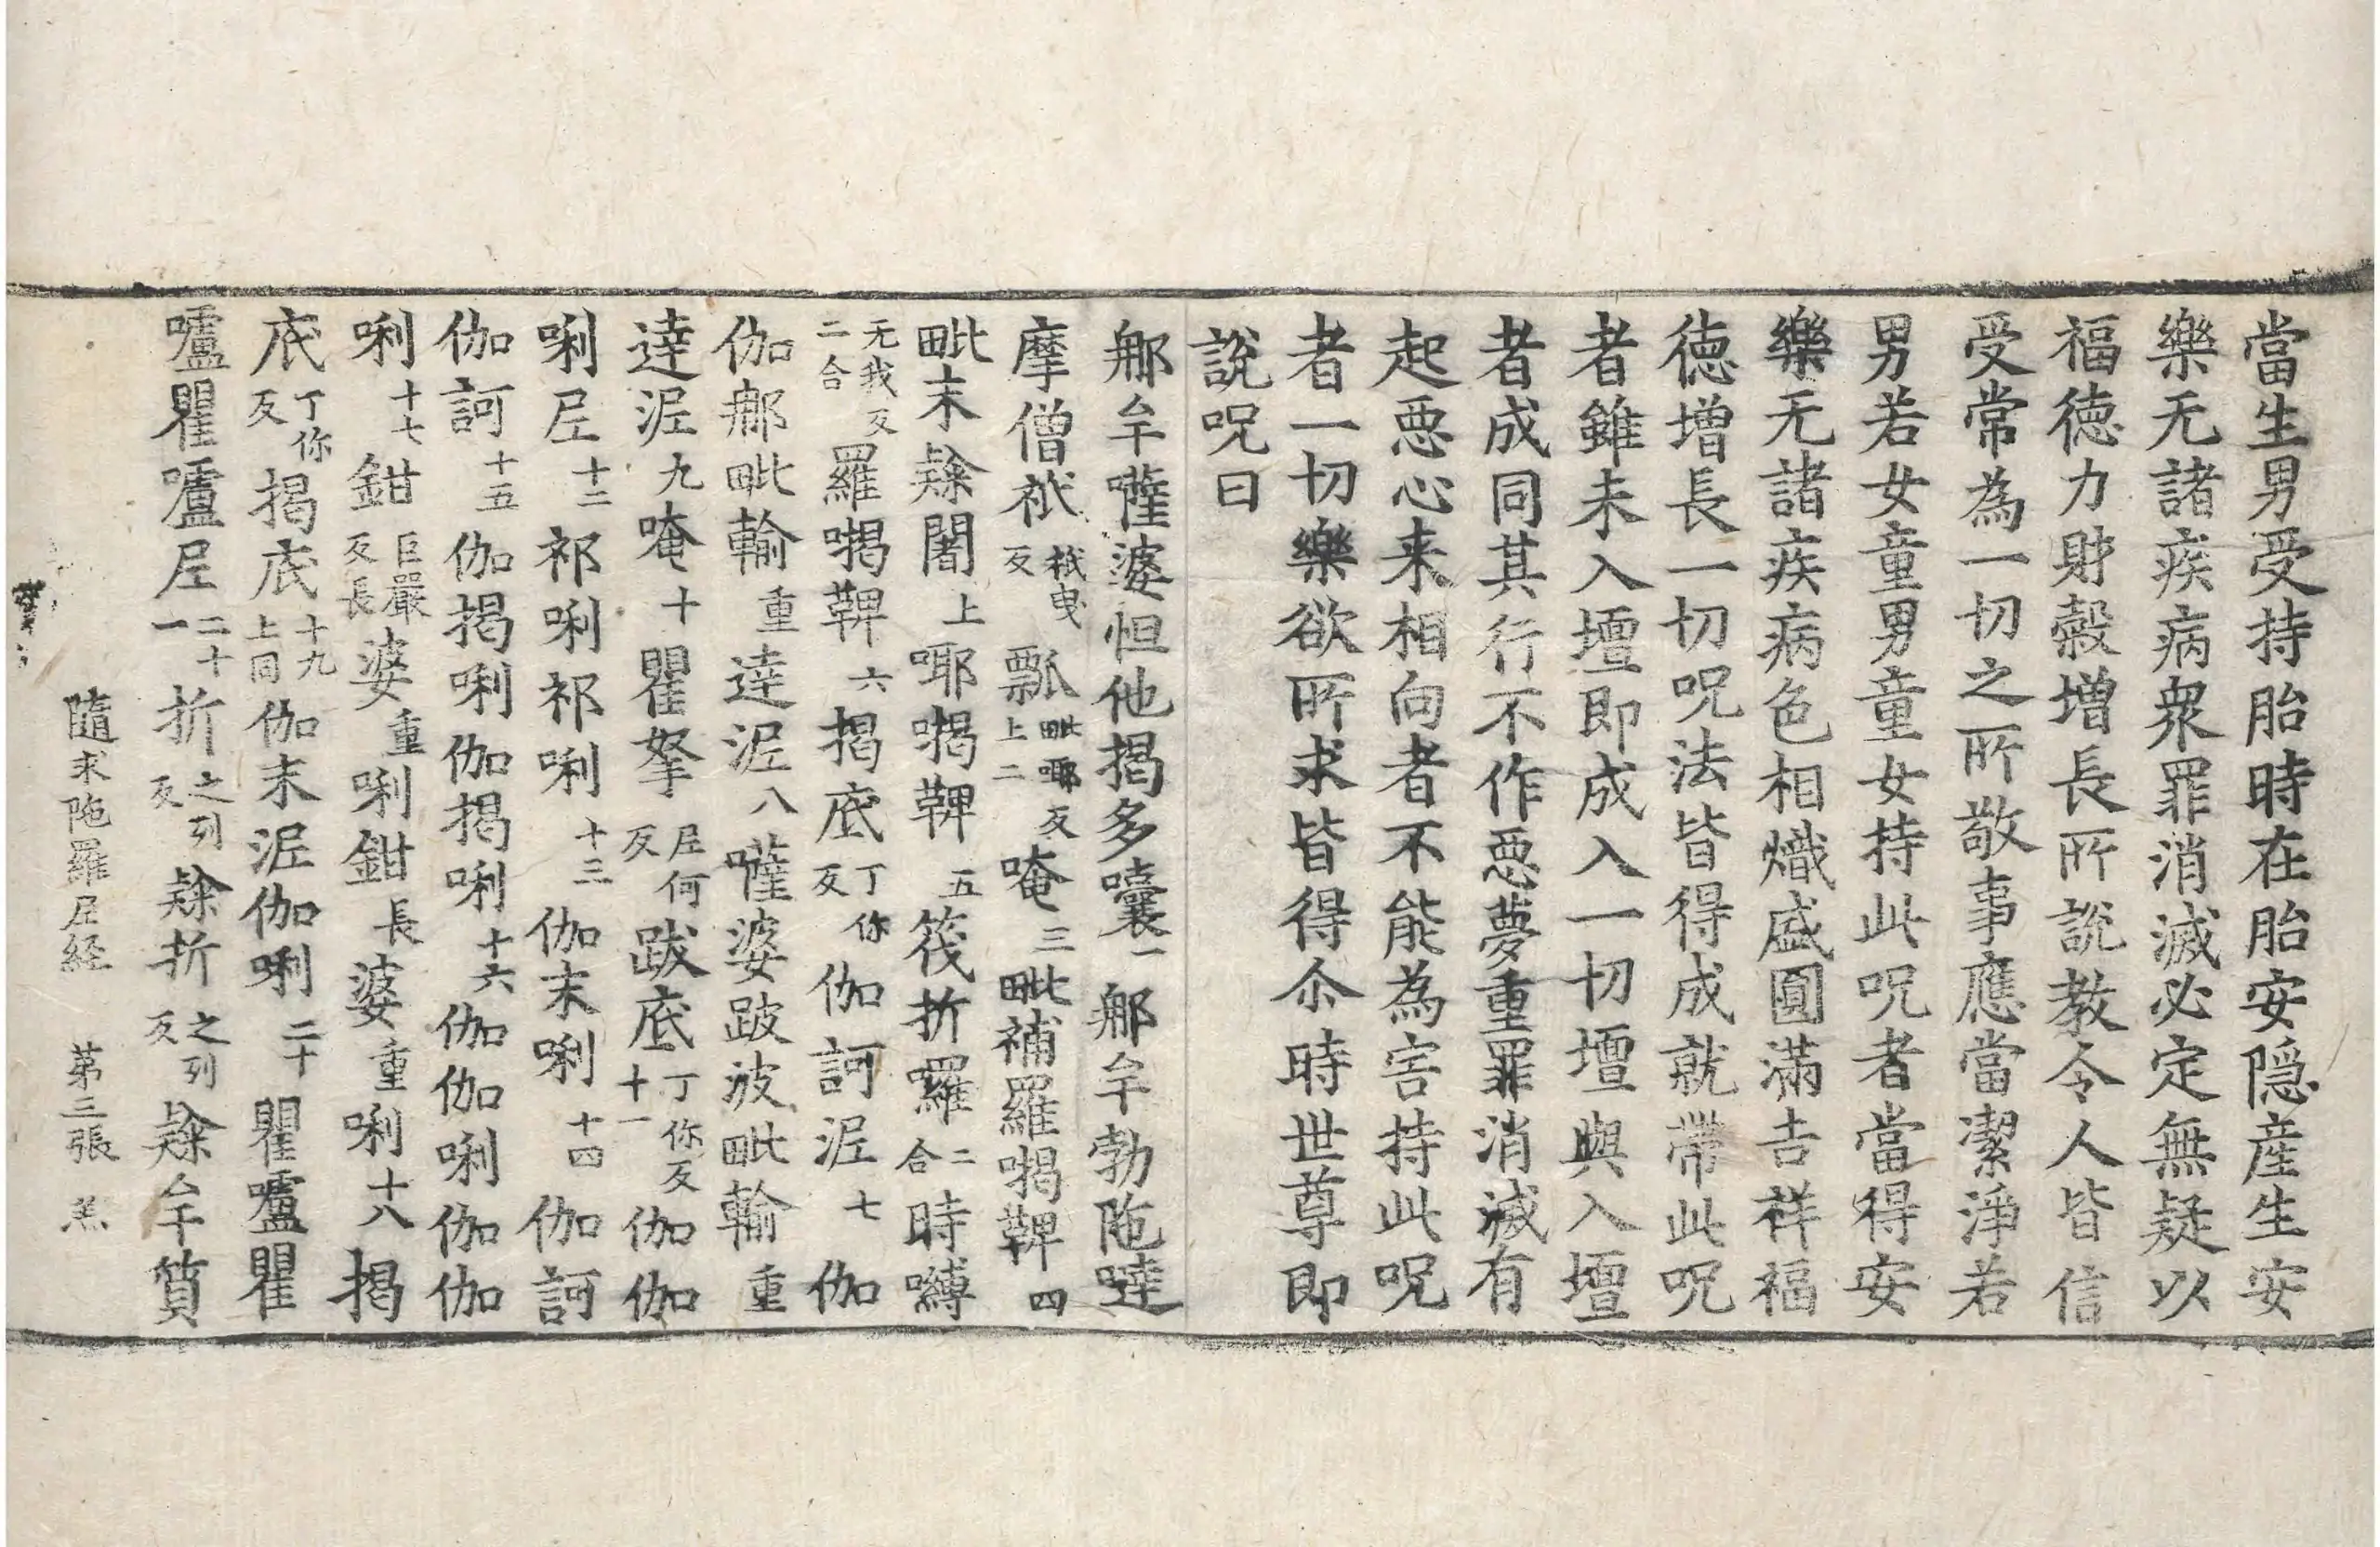 當生男受持胎時在胎安隠産生安
樂无諸疾病衆罪消滅必定無疑以
福徳力財穀増長所說教令人皆信
受常為一切之所敬事應當潔淨若
男若女童男童女持此呪者當得安
樂无諸疾病色相熾盛圓滿吉祥福
徳增長一切呪法皆得成就帶此呪
者雖未入壇即成入一切壇與入壇
者成同其行不作惡夢重罪消滅有
起惡心来相向者不能為害持此呪
者一切樂欲所求皆得尒時世尊即
說呪曰
那牟囄婆怛他揭多囊一那牟勃陁噠
摩僧祇祇曳反瓢毗耶反上二唵三毗補羅揭鞞四
毗末𨽻闍上耶揭鞞五筏折囉二合時嚩
无我反二合羅揭鞞六揭底丁你反伽訶泥七伽
伽那毗輸重達泥八薩婆跛波毗輸重
達泥九唵十瞿拏尼何反跋底丁你反十一伽伽
唎尼十二祁唎祁唎十三伽末唎十四伽訶
伽訶十五伽揭唎伽揭唎十六伽伽唎伽伽
唎十七鉗巨嚴反長婆重唎鉗長婆重唎十八揭
底丁你反揭底十九上同伽末泥伽唎二十瞿嚧瞿
嚧瞿嚧尼二十一折之列反𨽻折之列反𨽻牟質
隨求陁羅尼経 第三張 羔